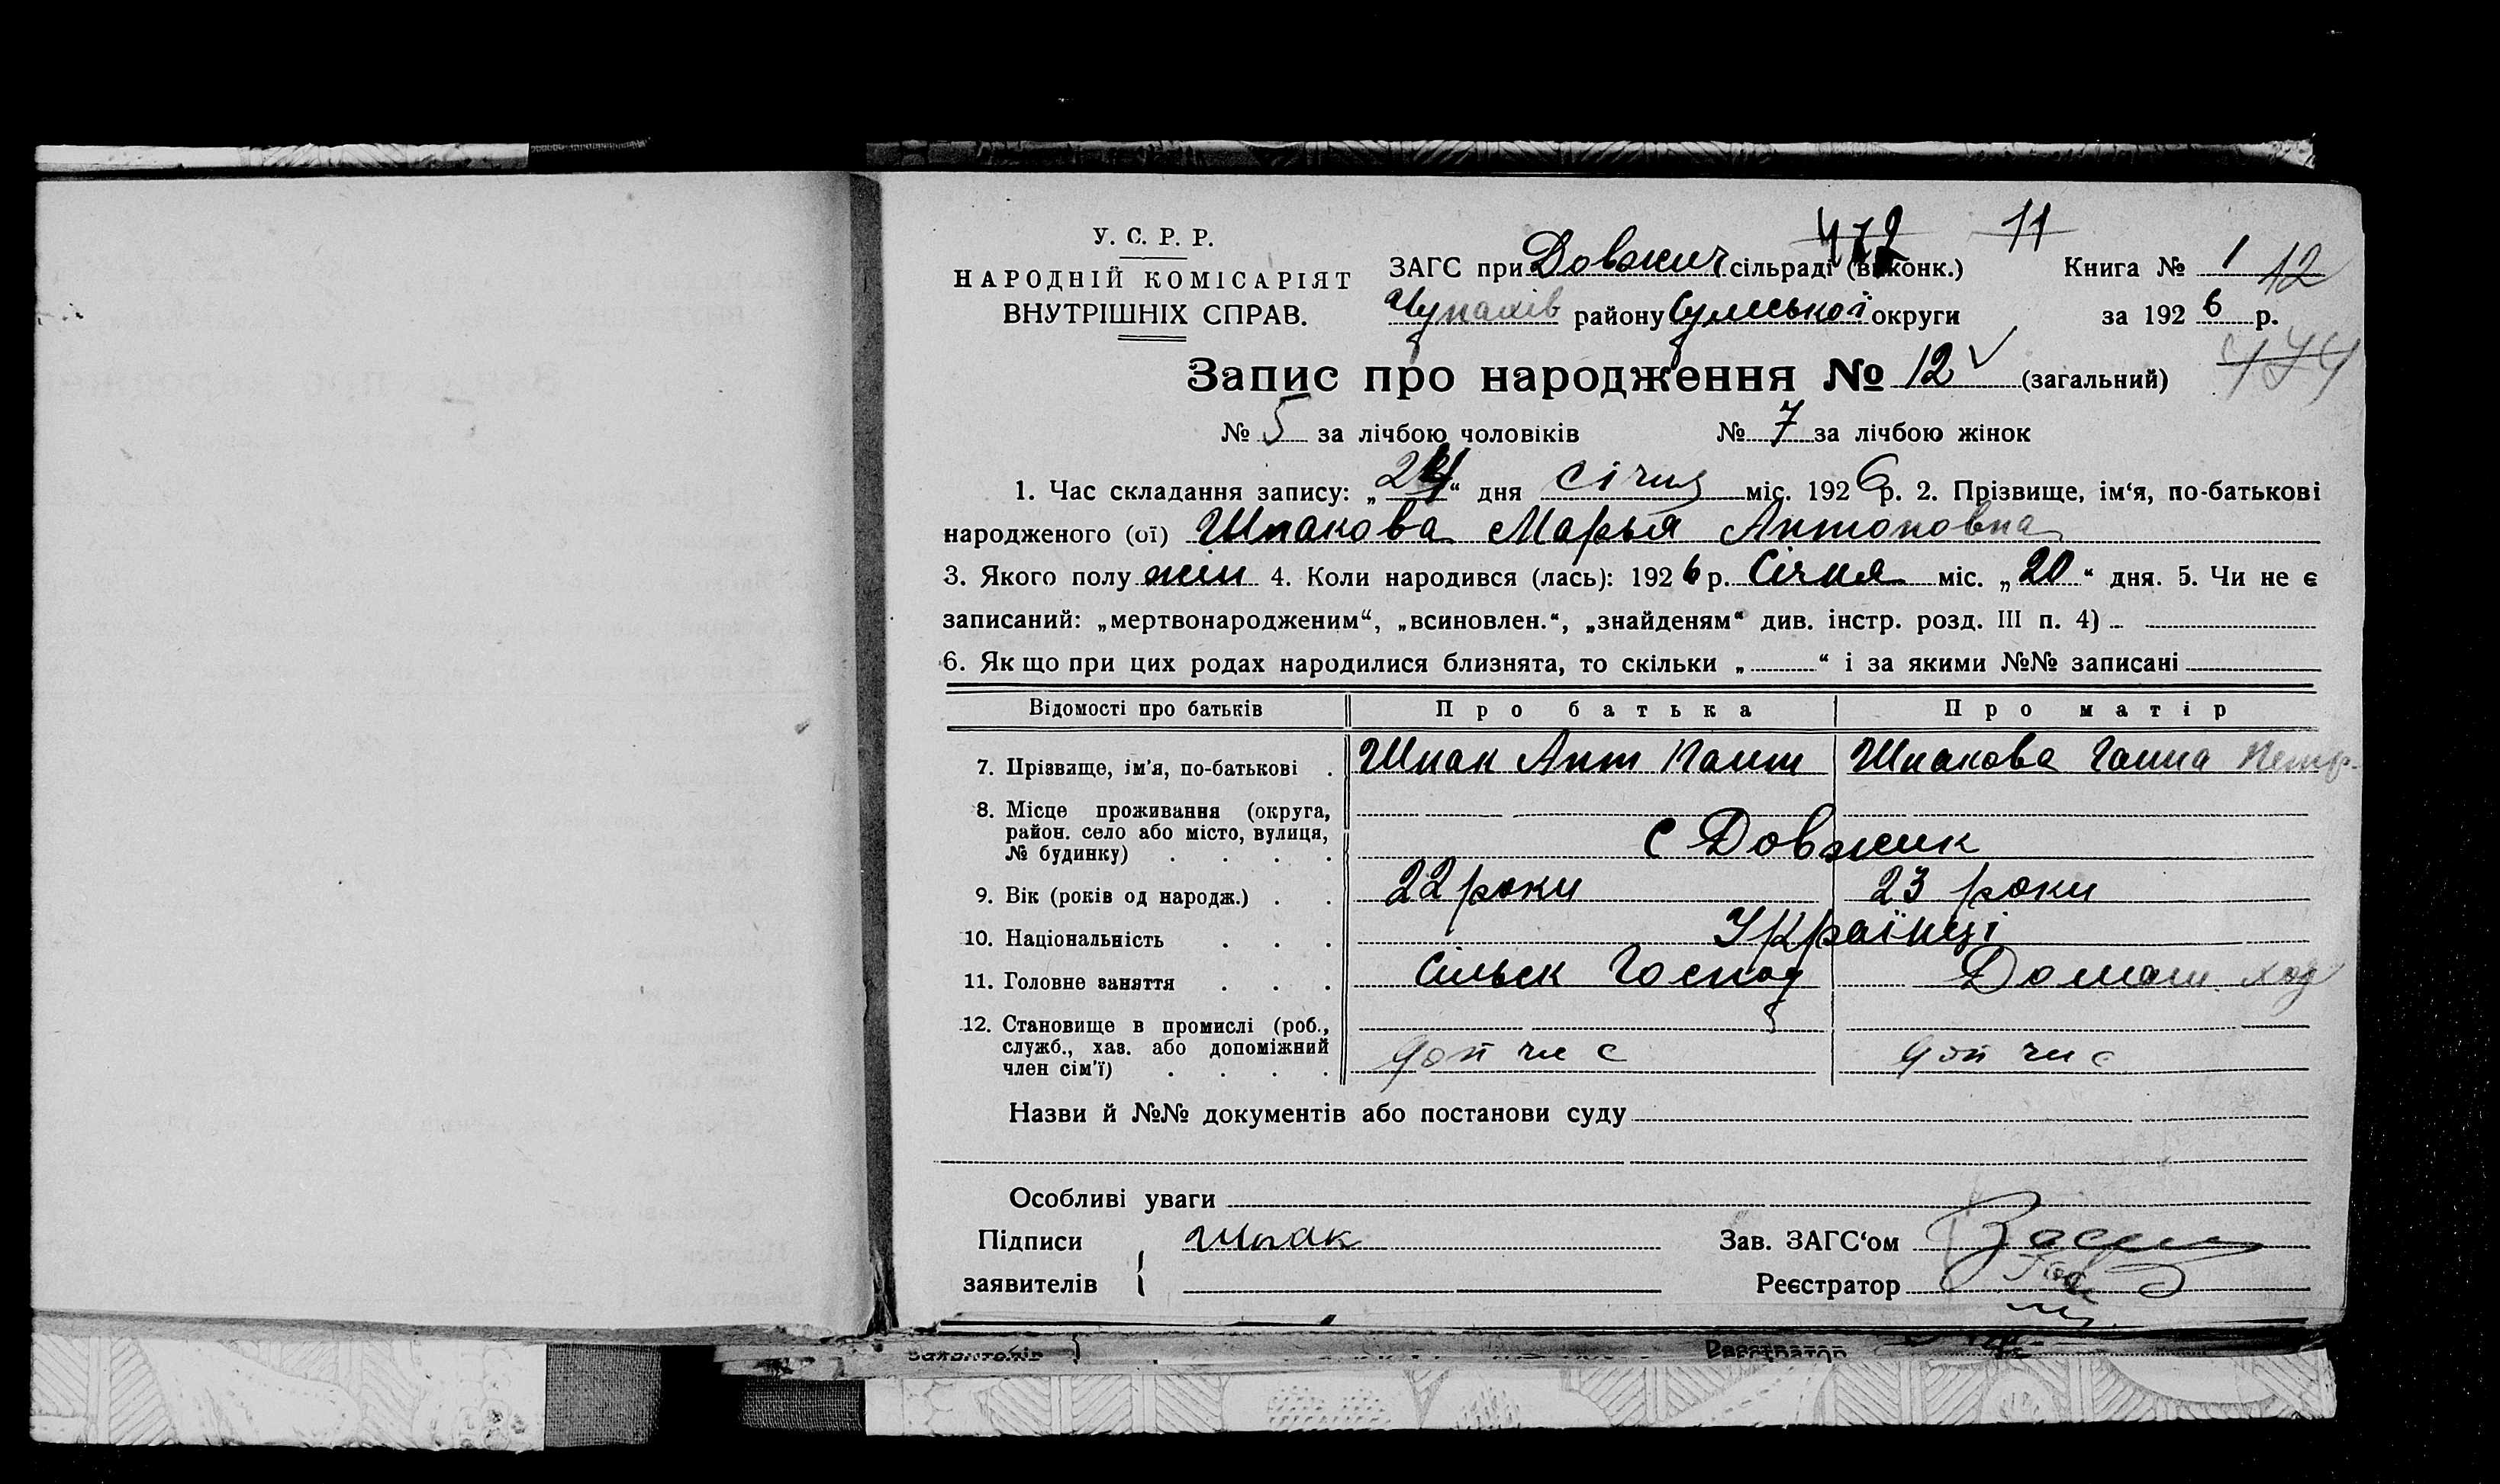 У. С. Р. Р.
НАРОДНІЙ КОМІСАРІЯТ
ВНУТРІШНІХ СПРАВ.
472 11
ЗАГС при Довжич сільраді (виконк.) Книга № 1 12
Чупахів району Сумської округи за 1926 р.
474
Запис про народження № 12 (загальний)
№ 5 за лічбою чоловіків № 7 за лічбою жінок
1. Час складання запису: „24“ дня січня міс. 1926 р. 2. Прізвище, ім‘я, по-батькові
народженого (ої) Шпакова Марья Антоновна
3. Якого полу жін 4. Коли народився (лась): 1926 р. Січня міс. „20“ дня. 5. Чи не є
записаний: „мертвонародженим“, „всиновлен.“, „знайденям“ див. інстр. розд. III п. 4)
6. Якщо при цих родах народилися близнята, то скільки „ “ і за якими №№ записані
Відомості про батьків Про батька Про матір
7. Прізвище, ім‘я, по-батькові . Шпак Ант Шпакова Ганна Петр.
8. Місце проживання (округа,
район. село або місто, вулиця,
№ будинку) . . . . с Довжик
9. Вік (років од народж.) . . 22 роки 23 роки
10. Національність . . . Українці
11. Головне заняття . . . Сільск Господ Домаш.
12. Становище в промислі (роб.,
служб., хаз. або допоміжний
член сім‘ї) . . . . доп чл с доп чл с
Назви й №№ документів або постанови суду
Особливі уваги
Підписи Шпак Зав. ЗАГС‘ом
заявителів Реєстратор
заявителів Реєстратор